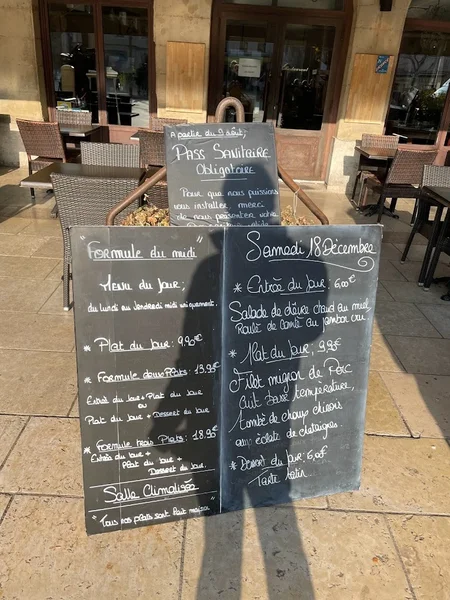 A partir du 9 août,
PASS SANITAIRE
Obligatoire
Pour que nous puissions
vous installer merci
de nous présenter votre
"Formule du midi"
Menu du Jour;
du lundi au Vendredi midi uniquement.
* Plat du Jour: 9,90€
* Formule deux Plats: 15.90€
Entrée du Jour + Plat du Jour
ou
Plat du Jour + Dessert du Jour
* Formule trois Plats: 18.90€
Entrée du Jour +
Plat du Jour +
Dessert du Jour.
Salle Climatisée
"Tous nos plats sont Fait maison"
Samedi 18 Décembre
* Entrée du Jour: 6,00€
Salade de chèvre chaud au miel,
Roulé de Comté au jambon cru
* Plat du Jour; 9,90€
Filet mignon de Porc
Cuit basse température,
Tombé de choux chinois
aux éclats de chataignes
* Dessert du Jour: 6,00€
Tarte tatin